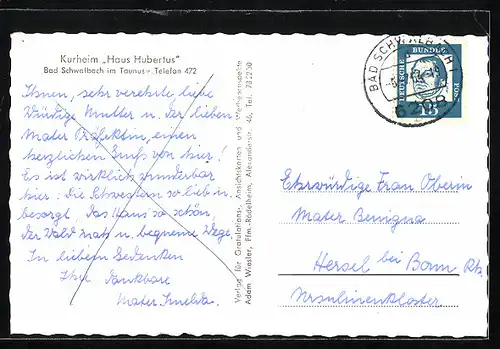 Kurheim „Haus Hubertus"
Bad Schwalbach im Taunus - Telefon 472
Ihnen, sehr verehrte, liebe
Würdige Mutter u. der lieben
Mater Präfektin, einen
herzlichen Gruß von hier!
Es ist wirklich wunderbar
hier: die Schwestern so lieb u.
besorgt, das Haus so schön,
der Wald nah u. bequeme Wege.
In liebem Gedenken
Ihre dankbare
Mater Imelda.
Verlag für Gratulations-, Ansichtskarten und Werbeprospekte
Adam Wiesler, Ffm.-Rödelheim, Alexanderstr. 46, Tel. 782230
BAD SCHWALBACH
6208
DEUTSCHE BUNDESPOST
15
Ehrwürdige Frau Oberin
Mater Benigna
Hersel bei Bonn Rh.
Ursulinenkloster